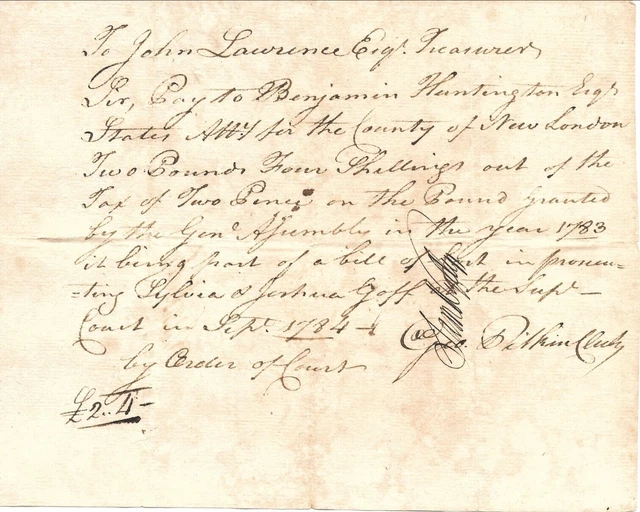 To John Lawrence Esqr. Treasurer
Sir, Pay to Benjamin Huntington Esqr
States Atty for the County of New London
Two Pounds Four Shillings out of the
Tax of Two Pence on the Pound granted
by the Genl. Assembly in the year 1783
it being part of a bill of Cost in prosecu-
-ting Sylvia & Joshua Goff at the Supr.
Court in Sept. 1784
Geo. Pitkin Clerk
by Order of Court
£2..4-